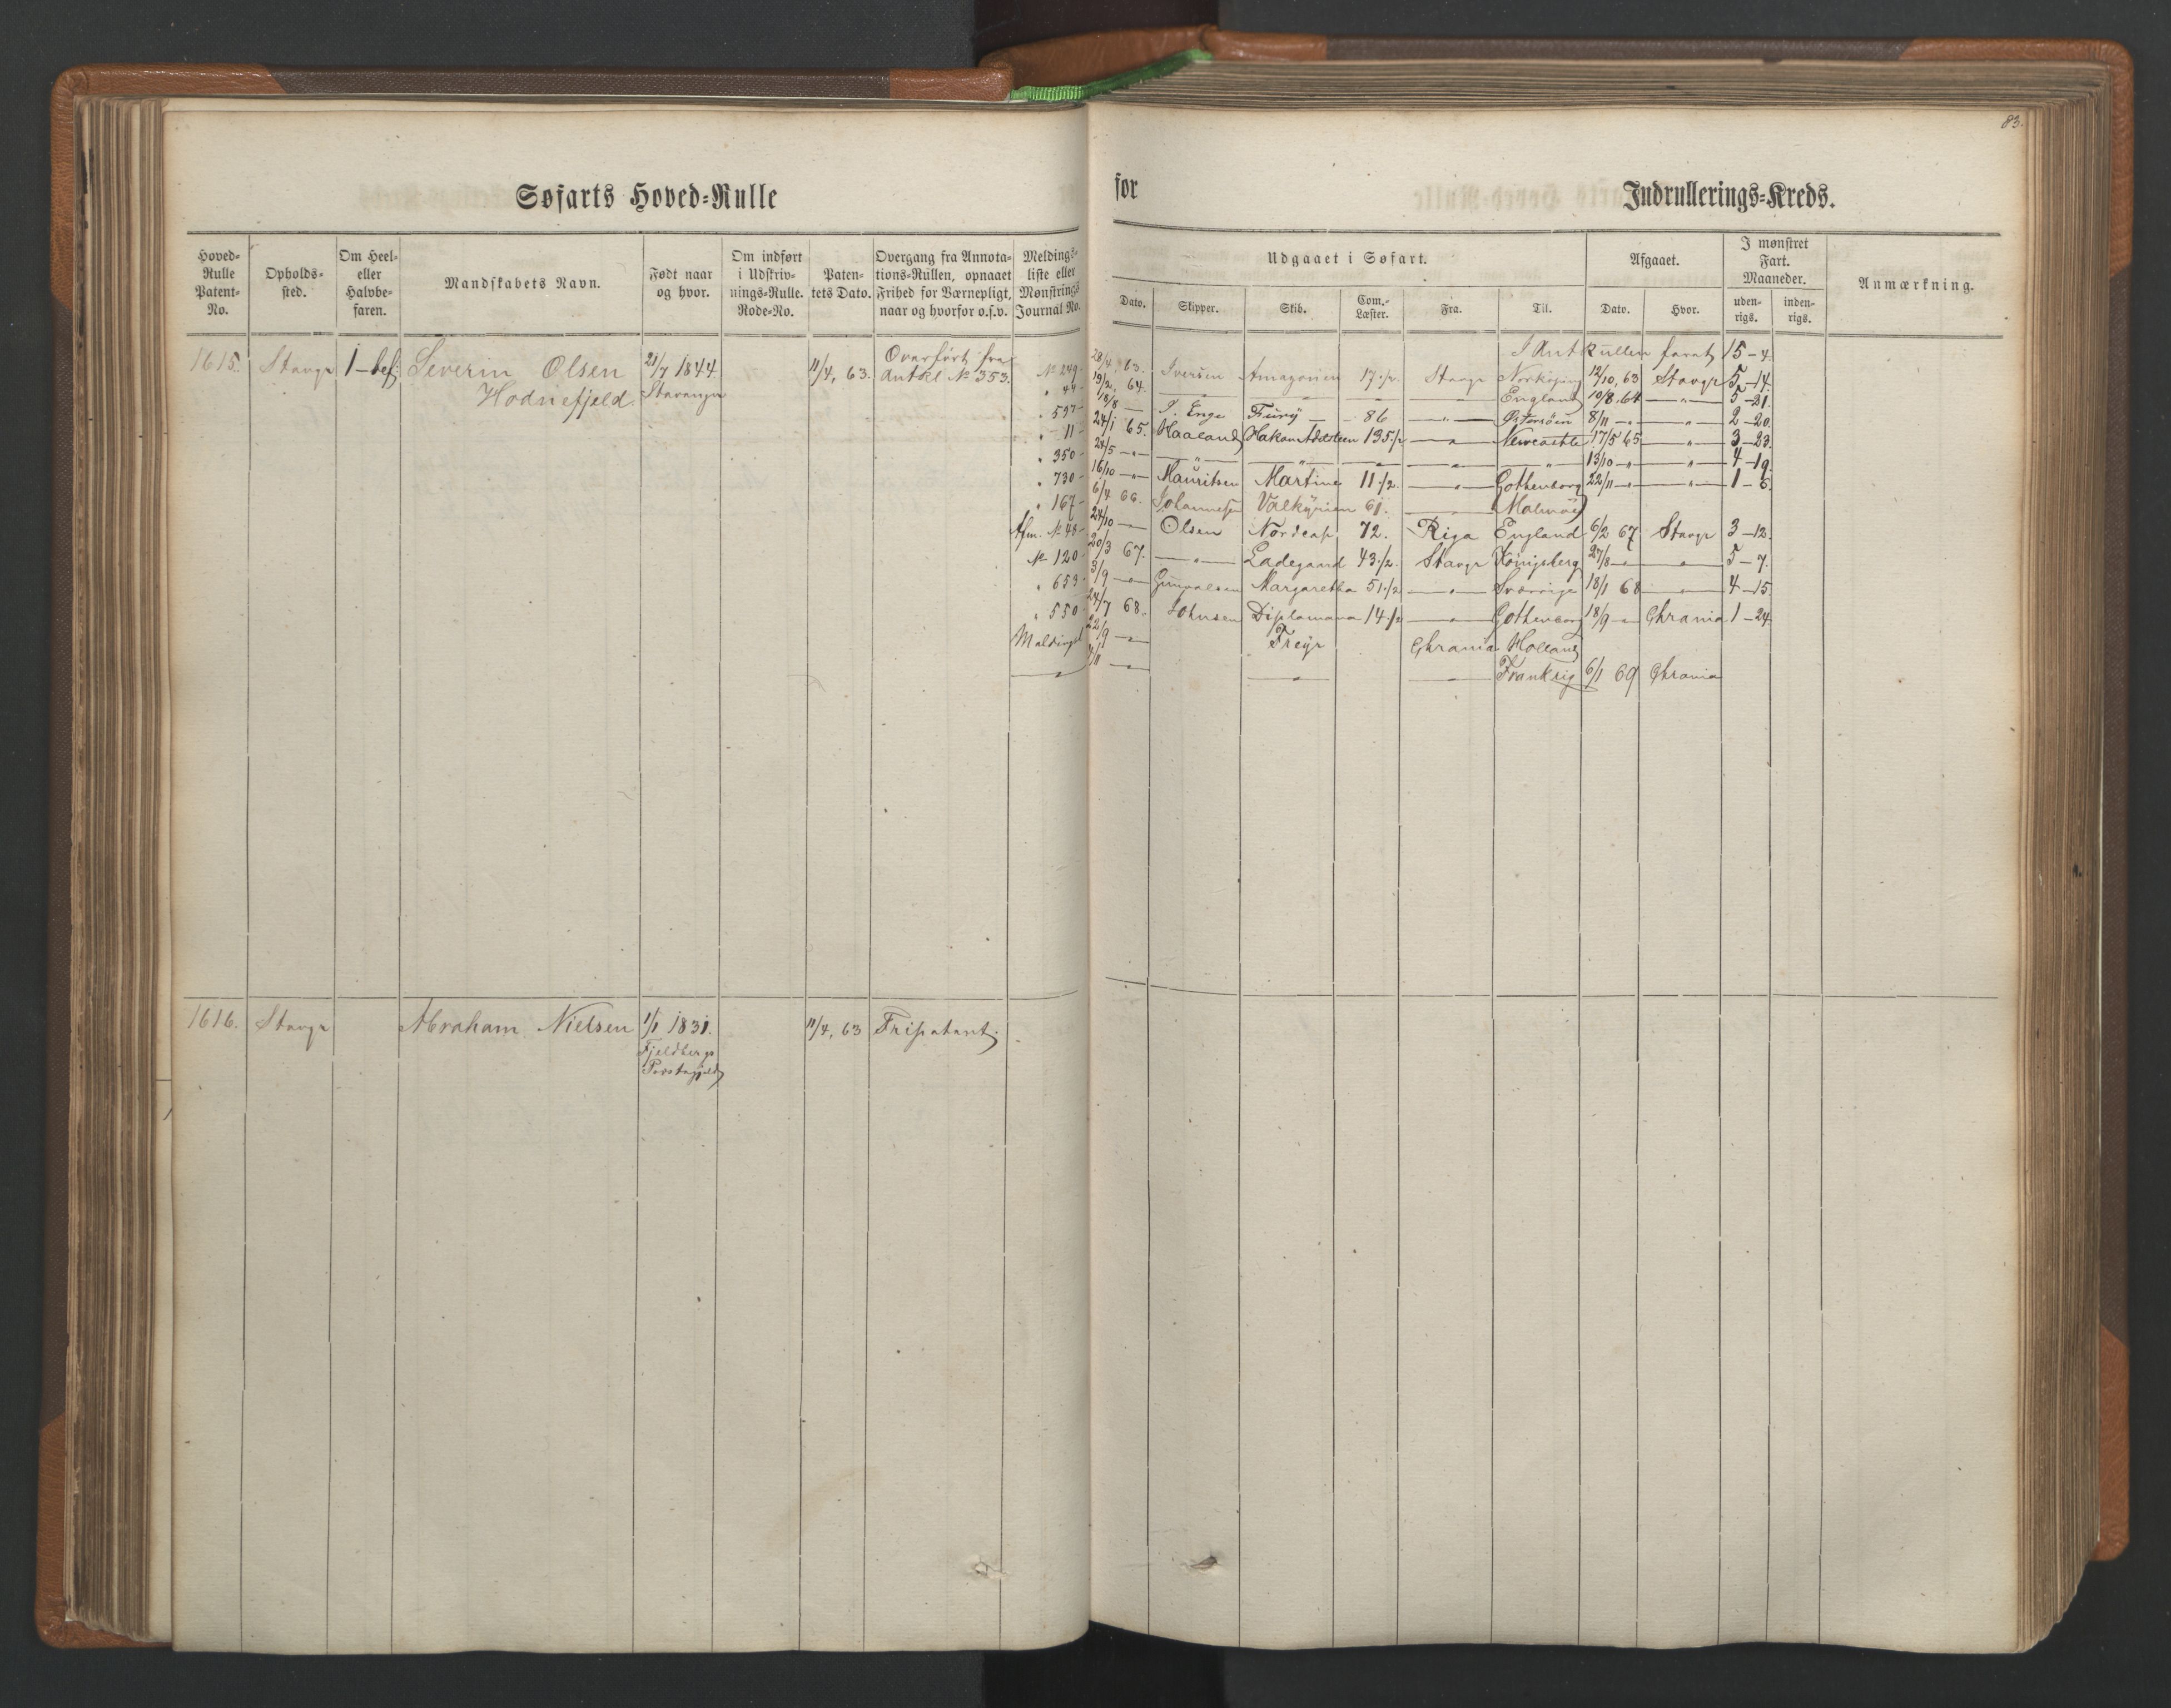 83.
Søfarts Hoved-Rulle
for
Indrullerings-Kreds.
Hoved-Rulle Patent-No.
Opholds-sted.
Om Heel- eller Halvbe-faren.
Mandskabets Navn.
Født naar og hvor.
Om indført i Udskriv-nings-Rulle. Rode-No.
Paten-tets Dato.
Overgang fra Annota-tions-Rullen, opnaaet Frihed for Værnepligt, naar og hvorfor o.s.v.
Meldings-liste eller Mønstrings Journal No.
Udgaaet i Søfart.
Dato. Skipper. Skib. Com.-Læster. Fra. Til.
Afgaaet.
Dato. Hvor.
I mønstret Fart. Maaneder.
uden-rigs. inden-rigs.
Anmærkning.
1615. Stavgr 1-bef. Severin Olsen 21/7 1844 11/4, 63. Overført fra
Hodnefjeld. Stavanger AntRl № 353.
I AntRullen faret 15-4.
№ 249- 28/4, 63. Iversen Amazonen 17 1/2. Stavgr Norkøping 12/10, 63 Stavgr 5-14.
" 44- 19/2, 64. — " — " — " — England 10/8 64 — " — 5-21.
" 597- 18/8 — Enge Fury — 86 — " — Østersøen 8/11 — " — " — 2-20.
" 11- 24/1 65. Haaland Hakon Adelsteen 135 1/2 — " — Newcastle 17/5 65 — " — 3-23.
" 350- 24/5 — " — " — " — " — " — " 13/10 — " — " — 4-19.
" 730- 16/10 — " — Mauritsen Martine 11 1/2. — " — Gothenborg 22/11 — " — " — 1-6.
" 167- 6/4 66. Johannesen Valkyrien 61. — " — Malmøe
Afm. № 48- 24/10 — Olsen Nordcap 72. Riga England 6/2 67 Stavgr 3-12.
№ 120- 20/3 67. — " — Ladegaard 43 1/2. Stavgr Königsberg 27/8 — " — " — 5-7.
" 653- 3/9 — " — Gunvalsen Margaretha 51 1/2 — " — Sverrige 18/1 68 — " — 4-15.
" 550- 24/7 68. Johnsen 14 1/2 — " — Gothenborg 18/9 — " Chrania 1-24.
22/9 — " Freyr Chrania Holland
— " — 4/11 — " — " — — " — Frankrig 6/1 69 Chrania
1616. Stavgr Abraham Nielsen 1/1 1831. 11/4, 63 Fripatent.
Fjeldbergs
Præstegjeld